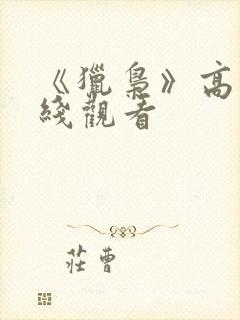 《獵梟》高
綫觀看
莊曹